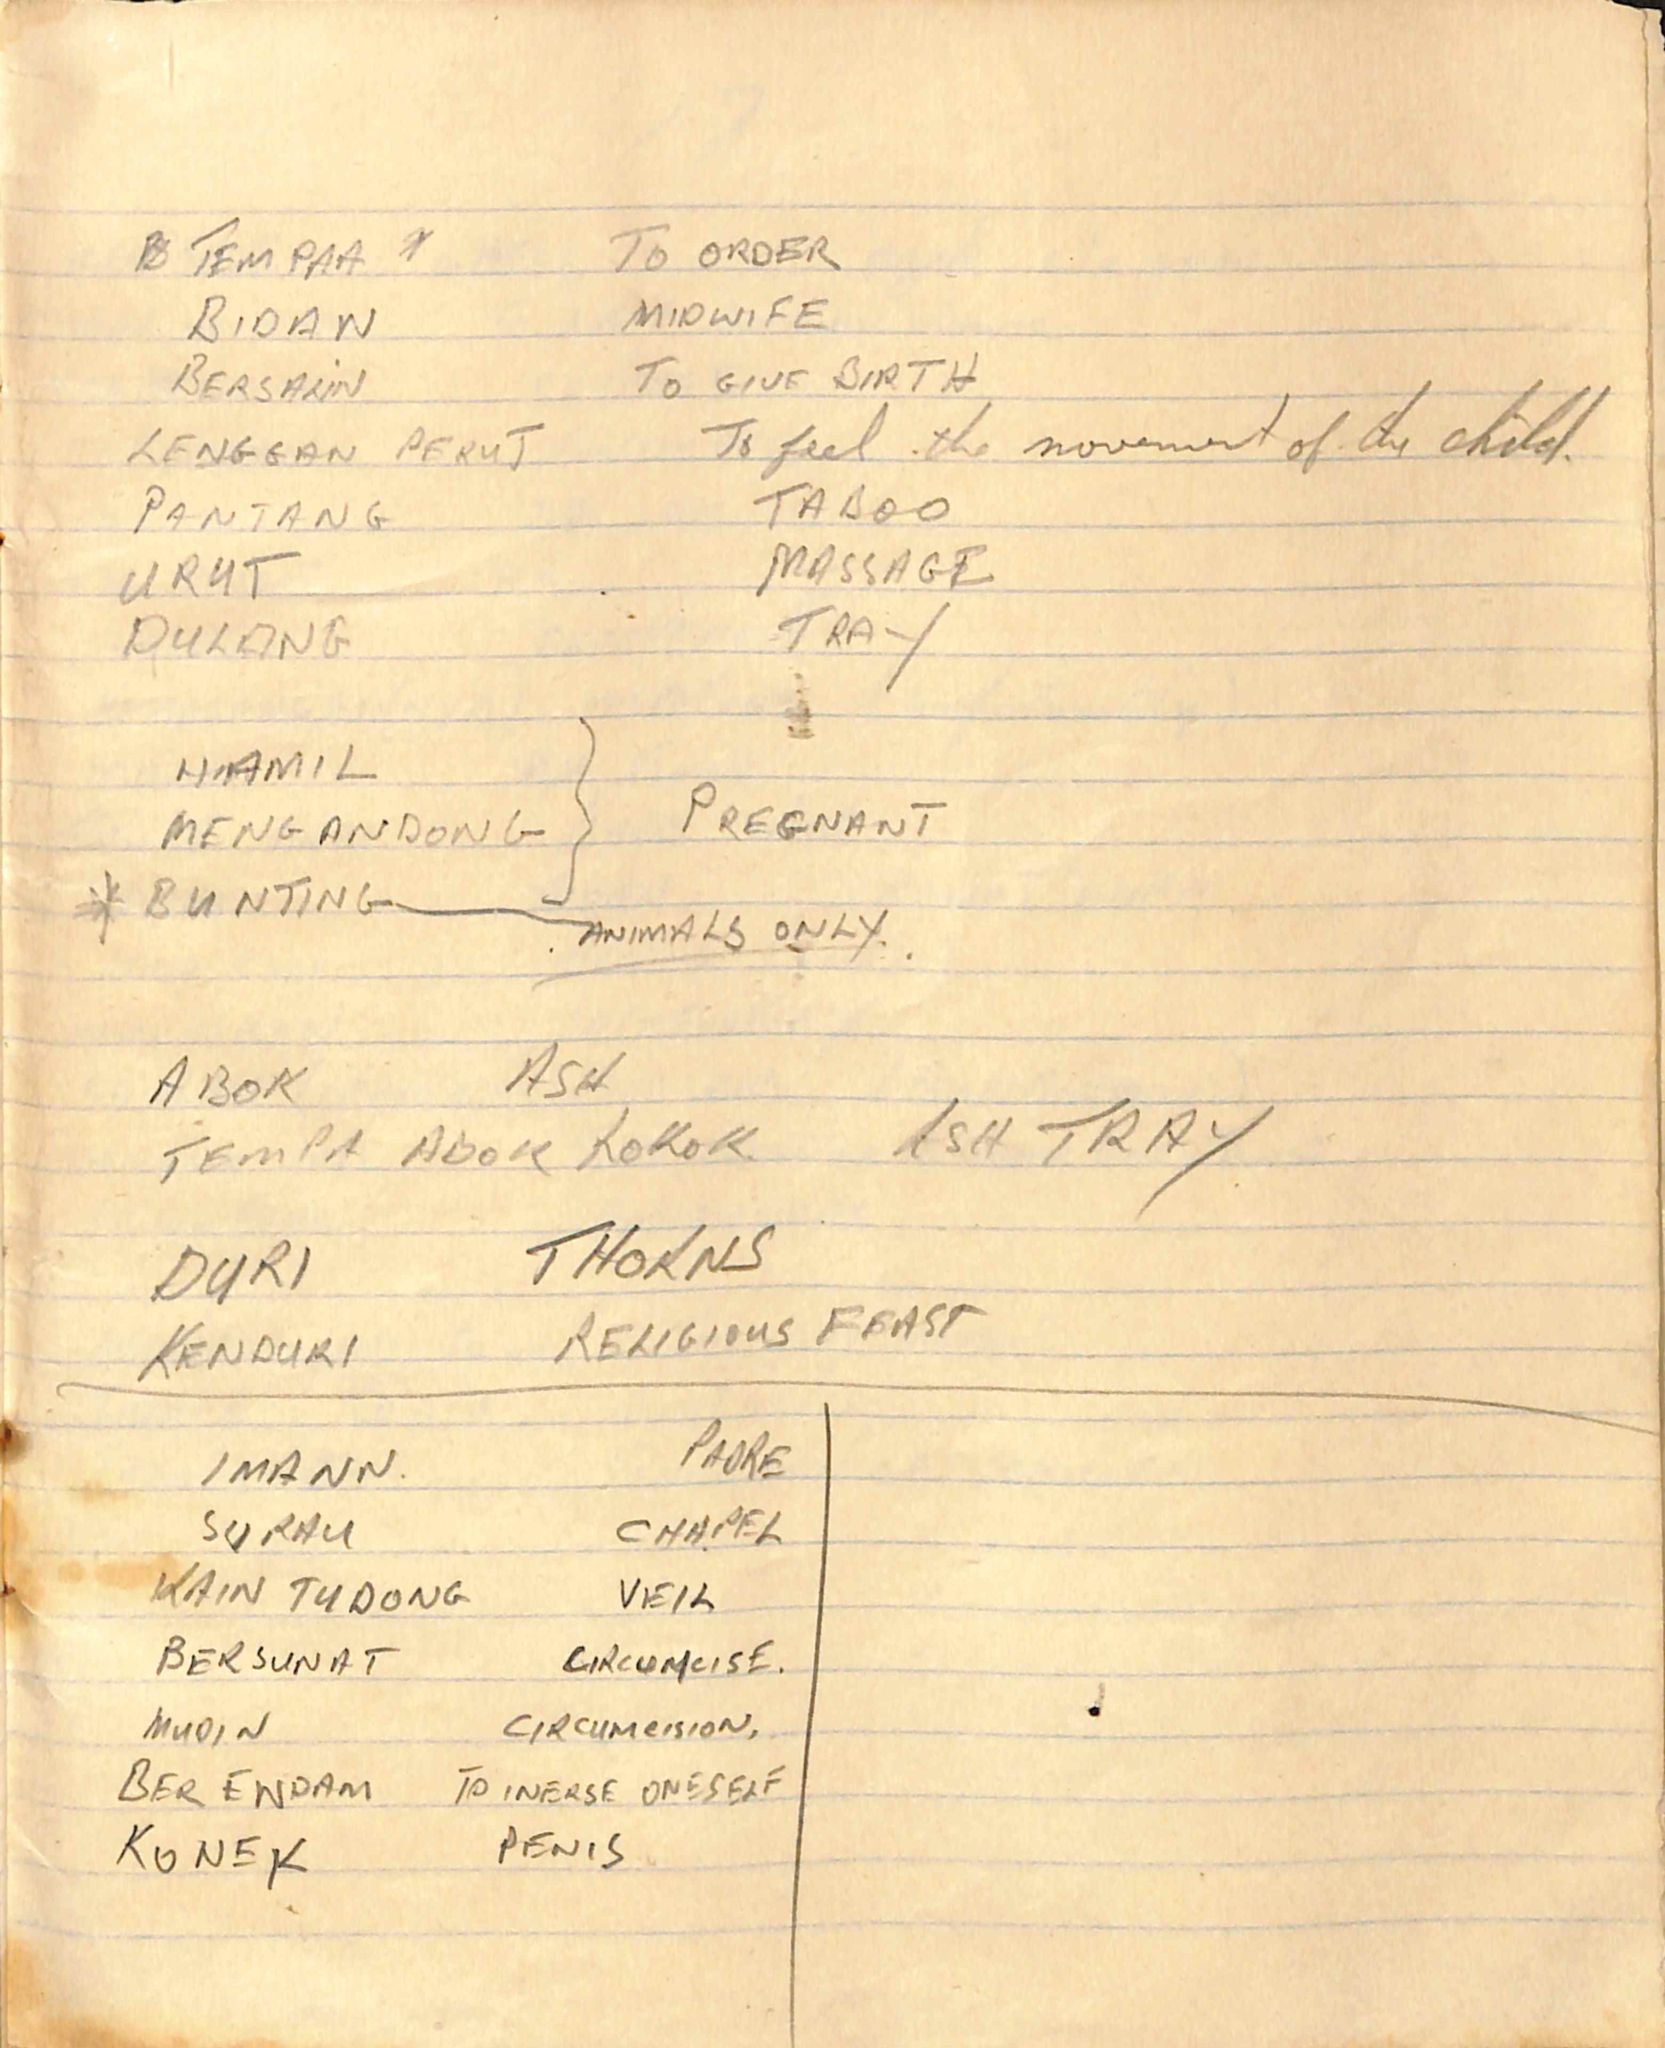 TEMPAA * TO ORDER
BIDAN MIDWIFE
BERSALIN TO GIVE BIRTH
LENGGAN PERUT To feel the movement of the child.
PANTANG TABOO
URUT MASSAGE
DULANG TRAY
HAMIL
MENGANDONG PREGNANT
* BUNTING ANIMALS ONLY.
ABOK ASH
TEMPA ABOK ROKOK ASH TRAY
DURI THORNS
KENDURI RELIGIOUS FEAST
IMANN. PADRE
SURAU CHAPEL
KAIN TUDONG VEIL
BERSUNAT CIRCUMCISE.
MUDIN CIRCUMCISION.
BER ENDAM TO INERSE ONESELF
KONEK PENIS